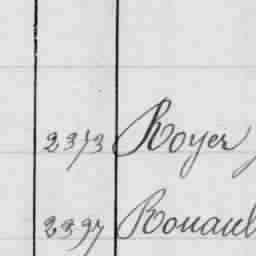 2373 Royer
2397 Rouaul